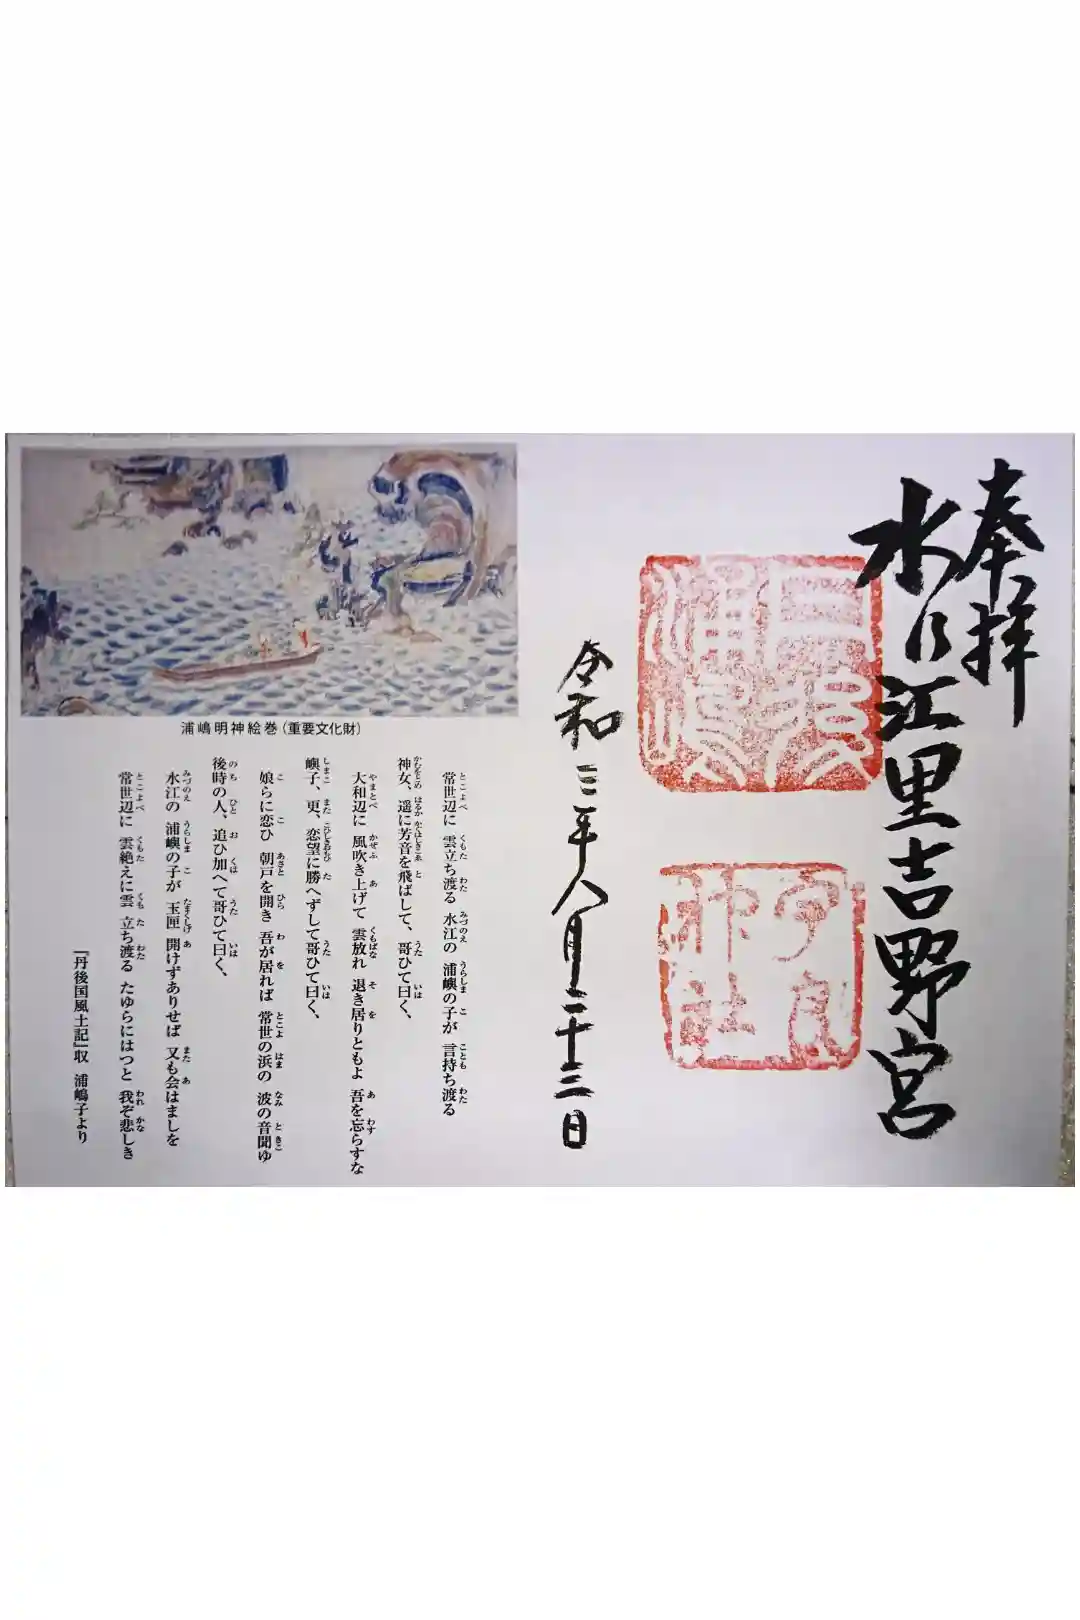 奉拝
水江里吉野宮
令和三年八月二十三日
浦嶋明神絵巻（重要文化財）
常世辺に 雲立ち渡る 水江の 浦嶼の子が 言持ち渡る
神女、遥に芳音を飛ばして、哥ひて曰く、
大和辺に 風吹き上げて 雲放れ 退き居りともよ 吾を忘らすな
嶼子、更、恋望に勝へずして哥ひて曰く、
娘らに恋ひ 朝戸を開き 吾が居れば 常世の浜の 波の音聞ゆ
後時の人、追ひ加へて哥ひて曰く、
水江の 浦嶼の子が 玉匣 開けずありせば 又も会はましを
常世辺に 雲絶えに雲 立ち渡る たゆらにはつと 我ぞ悲しき
『丹後国風土記』収 浦嶋子より